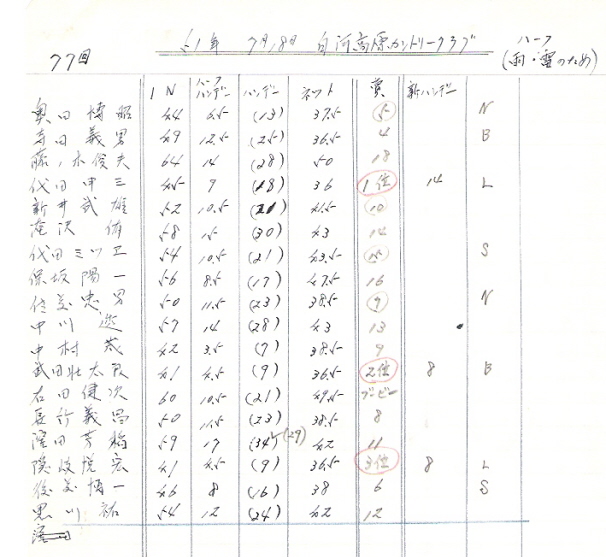 77回 51年 7月,8日 白河高原カントリークラブ ハーフ
(雨・雷のため)
IN ハーフハンデー ハンデー ネット 賞 新ハンデー
奥田博昭 44 6.5 (13) 37.5 5 N
寺田義男 49 12.5 (25) 36.5 4 B
藤ノ木俊夫 64 14 (28) 50 18
代田申三 45 9 (18) 36 1位 14 L
新井武雄 52 10.5 (21) 41.5 10
滝沢 58 15 (30) 43 14
代田ミツエ 54 10.5 (21) 43.5 15 S
保坂陽一 56 8.5 (17) 47.5 16
忠男 50 11.5 (23) 38.5 9 N
中川 57 14 (28) 43 13
中村 茂 42 3.5 (7) 38.5 9
武田壮太良 41 4.5 (9) 36.5 2位 8 B
右田健次 60 10.5 (21) 49.5 ブービー
義昌 50 11.5 (23) 38.5 8
窪田芳楢 59 17 (34) (29) 42 11
悦宏 41 4.5 (9) 36.5 3位 8 L
博一 46 8 (16) 38 6 S
黒川 祐 54 12 (24) 42 12